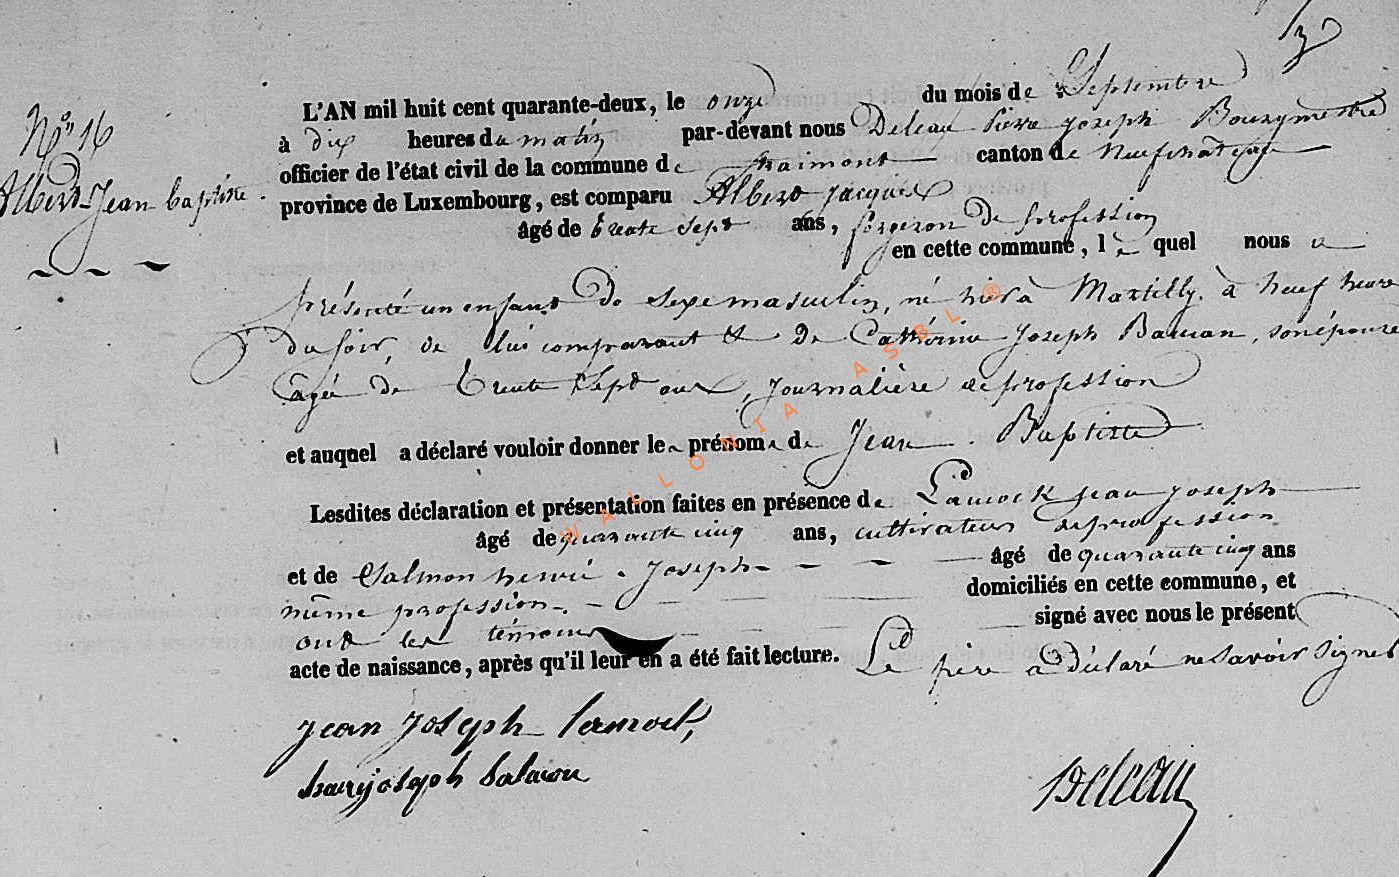 3
N° 16
Albert Jean baptiste
L'AN mil huit cent quarante-deux, le onze du mois de Septembre
à dix heures du matin par-devant nous Deleau Pierre Joseph Bourgmestre
officier de l'état civil de la commune de Straimont canton de Neufchâteau
province de Luxembourg, est comparu Albert Jacques
âgé de trente sept ans, forgeron de profession
en cette commune, lequel nous a
présenté un enfant de sexe masculin, né hier à Martilly à neuf heure
du soir, de lui comparant et de Cathérine Joseph , son épouse
âgée de trente sept ans, journalière de profession
et auquel a déclaré vouloir donner le prénom de Jean Baptiste
Lesdites déclaration et présentation faites en présence de Lamock jean joseph
âgé de quarante cinq ans, cultivateur de profession
et de Salmon henri Joseph âgé de quarante cinq ans
même profession domiciliés en cette commune, et
ont les témoins signé avec nous le présent
acte de naissance, après qu'il leur en a été fait lecture. Le père a déclaré ne savoir signer
jean joseph lamock,
henry joseph Salmon
Deleau
WALLONIA ASBL ®